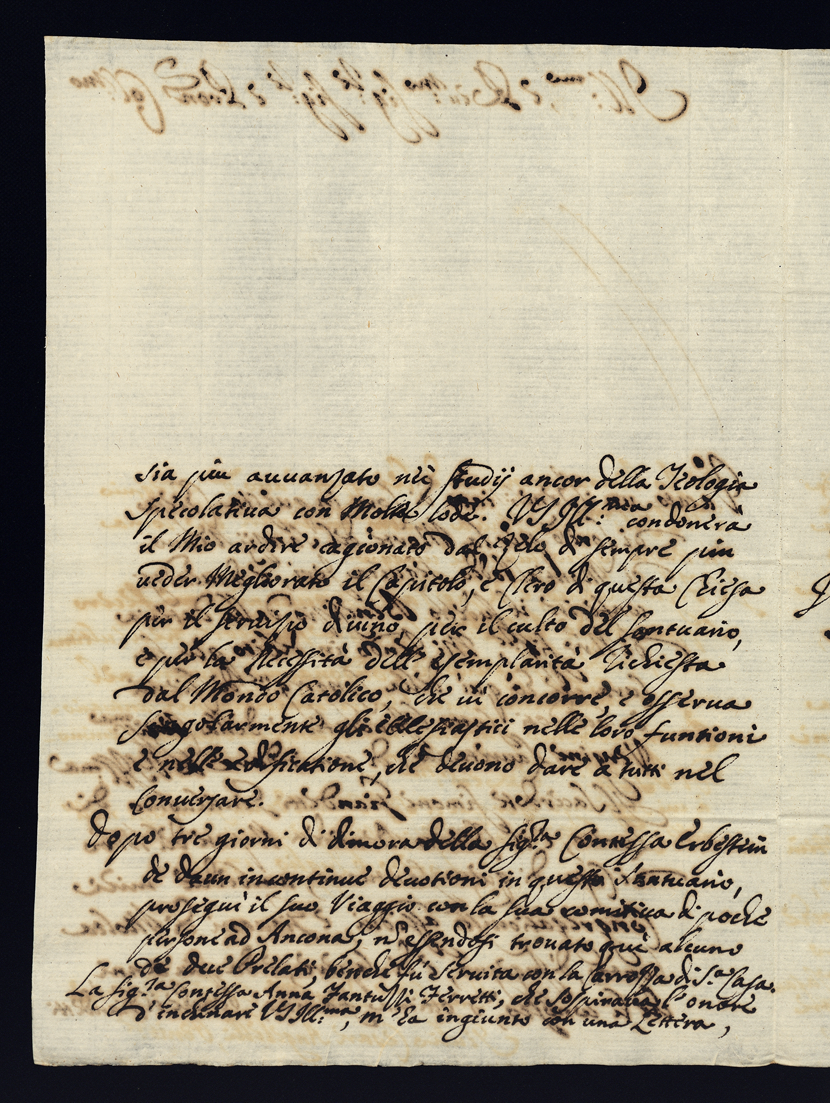 sia più auuanzato nei studij ancor della Teologia
specolatiua con molta lode. VS Ill:ma condonerà
il mio ardire cagionato dal zelo di sempre più
ueder megliorato il Capitolo, e Clero di questa Chiesa
per il seruisio diuino, per il culto del Santuario,
e per la necessità dell' esemplarità richiesta
dal Mondo Catolico, che ui concorre, e osserua
singolarmente gli eclesiastici nelle loro funtioni
e nelle edificatione, che deuono dare a tutti nel
conuersare.
Dopo tre giorni di dimora della Sig.ra Contessa Erbestein
in continue deuotioni in questo Santuario,
proseguì il suo Viaggio con la sua comitiua di poche
persone ad Ancona, n' essendosi trouato qui alcuno
de due Prelati, benche fù seruita con la Carrozza di S.a Casa.
La Sig.ra Contessa Anna Fantussi Ferretti, che sospiraua l' onore
d' inchinare VS Ill:ma, m' ha ingiunto con una Lettera,